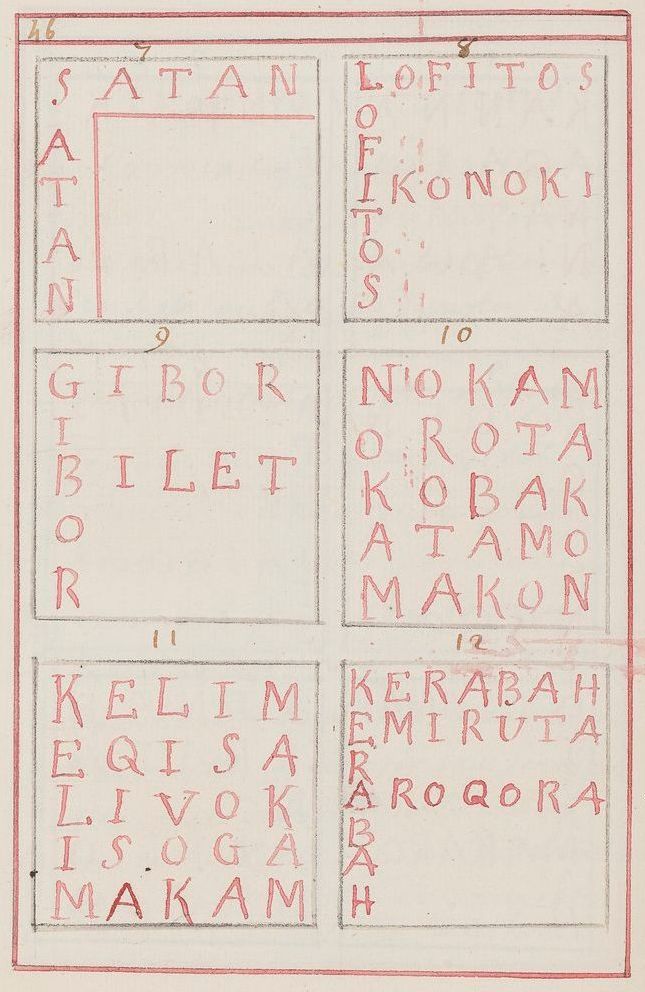 46
7
SATAN
A
T
A
N
8
LOFITOS
O
F
IKONOKI
T
O
S
9
GIBOR
I
BILET
O
R
10
NOKAM
OROTA
KOBAK
ATAMO
MAKON
11
KELIM
EQISA
LIVOK
ISOGA
MAKAM
12
KERABAH
EMIRUTA
R
AROQORA
B
A
H